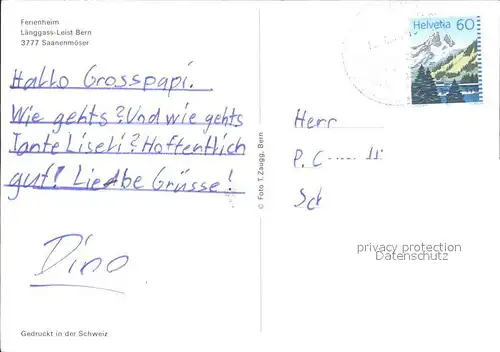 Ferienheim
Länggass-Leist Bern
3777 Saanenmöser
Helvetia 60
Hallo Grosspapi.
Wie gehts? Und wie gehts
Tante Liseli? Hoffentlich
gut! Liebe Grüsse!
Dino
© Foto T. Zaugg, Bern
Herr
P. C
privacy protection
Datenschutz
Gedruckt in der Schweiz